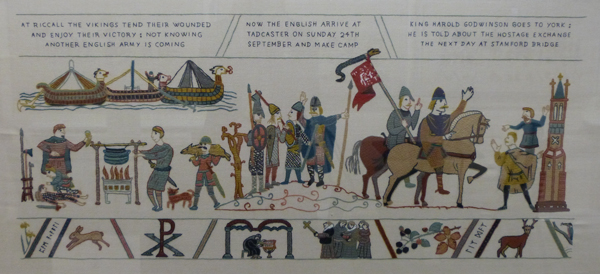 AT RICCALL THE VIKINGS TEND THEIR WOUNDED
AND ENJOY THEIR VICTORY : NOT KNOWING
ANOTHER ENGLISH ARMY IS COMING
NOW THE ENGLISH ARRIVE AT
TADCASTER ON SUNDAY 24TH
SEPTEMBER AND MAKE CAMP
KING HAROLD GODWINSON GOES TO YORK :
HE IS TOLD ABOUT THE HOSTAGE EXCHANGE
THE NEXT DAY AT STANFORD BRIDGE